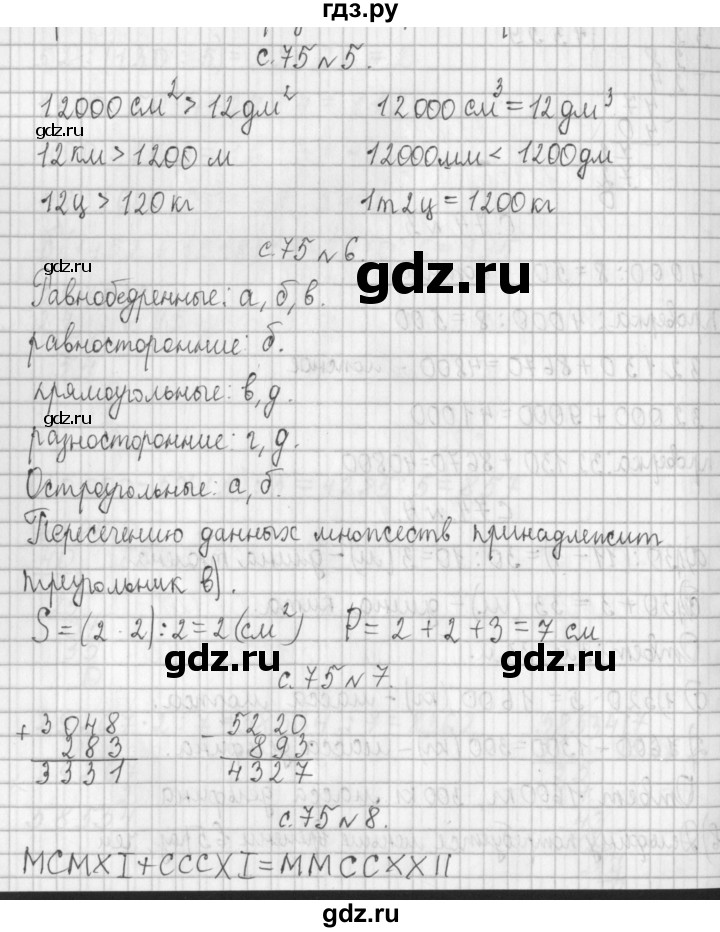 гдз.ру
с.75 №5.
12000 см² > 12 дм² 12000 см³ = 12 дм³
gdz.ru gdz.ru
12 км > 1200 м 12000 мм < 1200 дм
12ц > 120 кг 1т2ц = 1200 кг
с.75 №6.
gdz.ru
Равнобедренные: а, б, в.
равносторонние: б.
прямоугольные: в, д.
gdz.ru gdz.ru
разносторонние: г, д.
Остроугольные: а, б.
Пересечению данных множеств принадлежит
треугольник в).
S = (2 · 2) : 2 = 2 (см²) P = 2 + 2 + 3 = 7 см
gdz.ru gdz.ru
с.75 №7.
+ 3048 - 5220
283 893
3331 4327
с.75 №8.
gdz.ru gdz.ru
MCMXI + CCCXI = MMCCXXII
gdz.ru